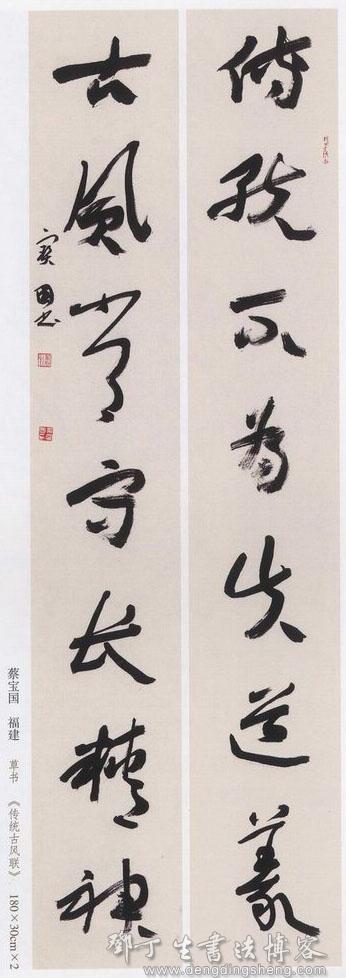 傳統不為失道義
古風常守长精神
寶國書
蔡宝国 福建 草书 《传统古风联》 180×30cm×2
鄧丁生書法博客
www.dengdingsheng.com